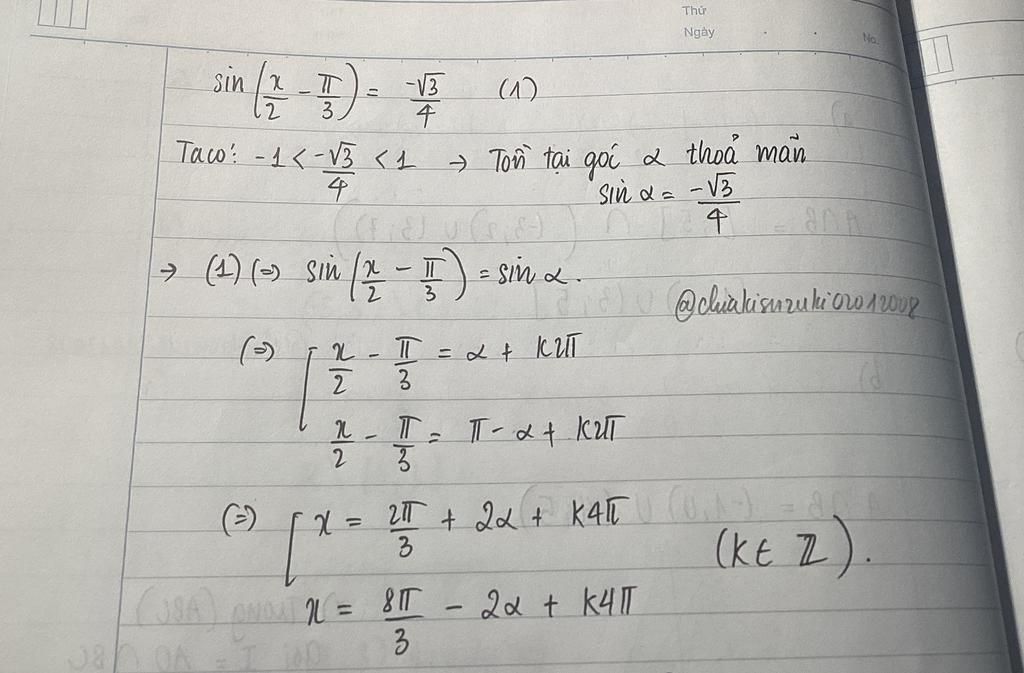 Thứ
Ngày
No.
sin(x/2 - π/3) = -√3/4 (1)
Ta có: -1 < -√3/4 < 1 → Tồn tại góc α thoả mãn
sin α = -√3/4
→ (1) (=) sin(x/2 - π/3) = sin α.
@chiakisuzuki02012008
(=) [ x/2 - π/3 = α + k2π
x/2 - π/3 = π - α + k2π
(=) [ x = 2π/3 + 2α + k4π
(k ∈ ℤ).
x = 8π/3 - 2α + k4π